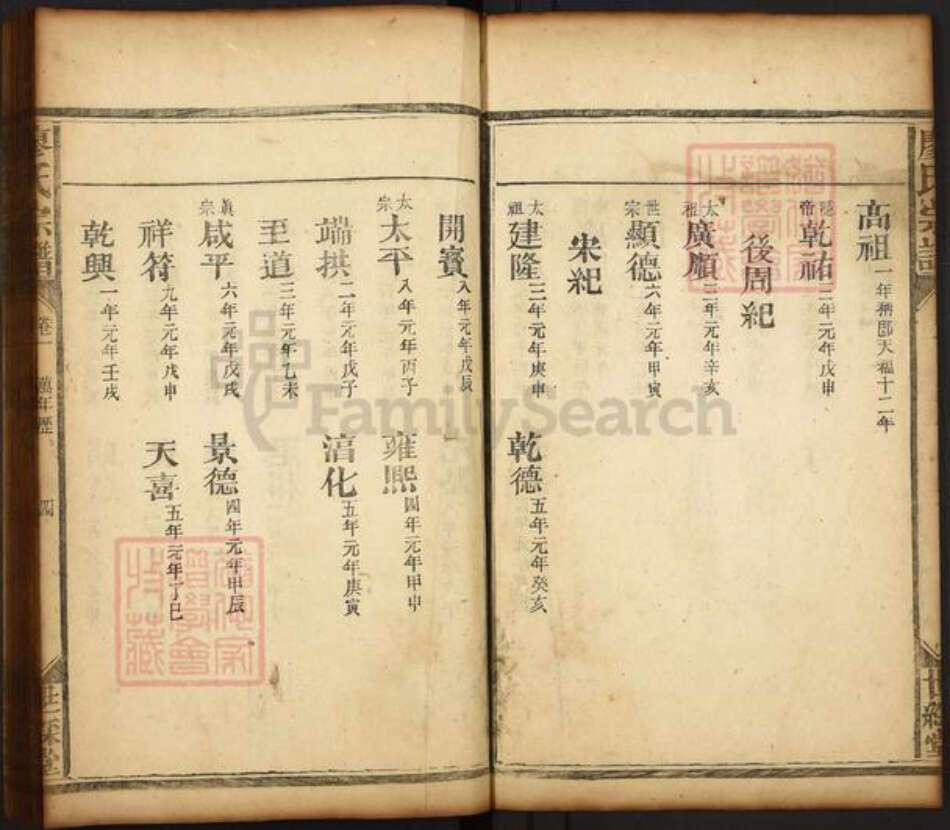 廖氏宗譜
高祖 一年稱郎天福十二年
隱帝 乾祐 三年元年戊申
後周紀
太祖 廣順 三年元年辛亥
世宗 顯德 六年元年甲寅
宋紀
太祖 建隆 三年元年庚申 乾德 五年元年癸亥
開寶 八年元年戊辰
太宗 太平 八年元年丙子 雍熙 四年元年甲申
端拱 二年元年戊子 淳化 五年元年庚寅
至道 三年元年乙未
眞宗 咸平 六年元年戊戌 景德 四年元年甲辰
祥符 九年元年戊申 天喜 五年元年丁巳
乾興 一年元年壬戌
廖氏宗譜 卷一 年歷 四 世綵堂
FamilySearch